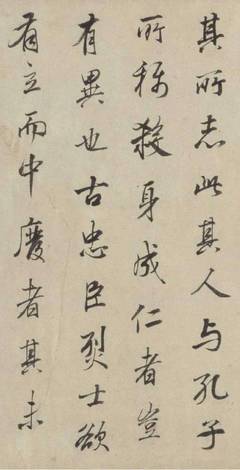 其所志此其人与孔子
所称殺身成仁者豈
有異也古忠臣烈士欲
有立而中廢者其未